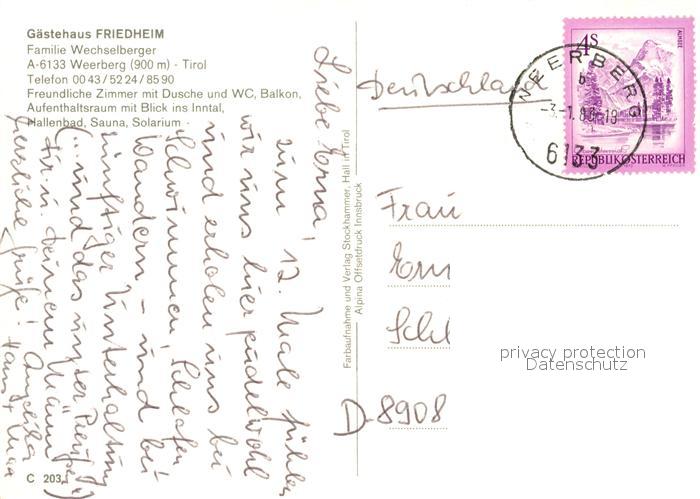 Gästehaus FRIEDHEIM
Familie Wechselberger
A-6133 Weerberg (900 m) - Tirol
Telefon 00 43 / 52 24 / 85 90
Freundliche Zimmer mit Dusche und WC, Balkon,
Aufenthaltsraum mit Blick ins Inntal,
Hallenbad, Sauna, Solarium -
Liebe Erna!
zum 12. Male fühlen
wir uns hier pudelwohl
und erholen uns bei
Schwimmen, Schlafen
Wandern - und bei
zünftiger Unterhaltung
und das unter
Dir u. Deinem Mann
herzliche Grüße!
Angelika
Farbaufnahme und Verlag Stockhammer, Hall in Tirol
Alpina Offsetdruck Innsbruck
C 203
Deutschland
4S
ALMSEE
WEERBERG
b
-3.-1.86-18
6133
REPUBLIK ÖSTERREICH
Frau
D-8908
privacy protection
Datenschutz